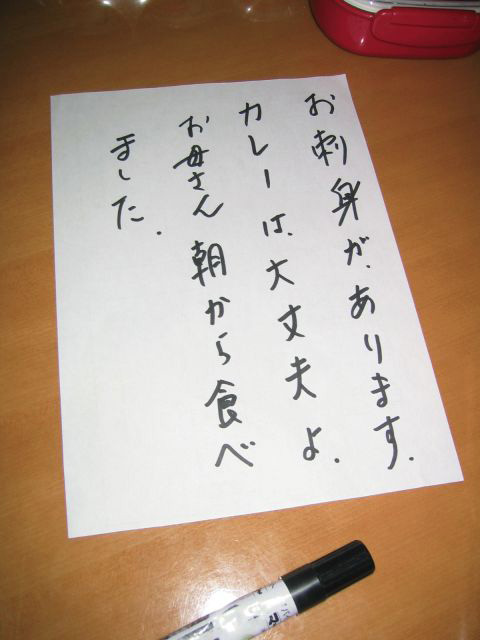 お刺身が、あります.
カレーは、大丈夫よ.
お母さん朝から食べ
ました.